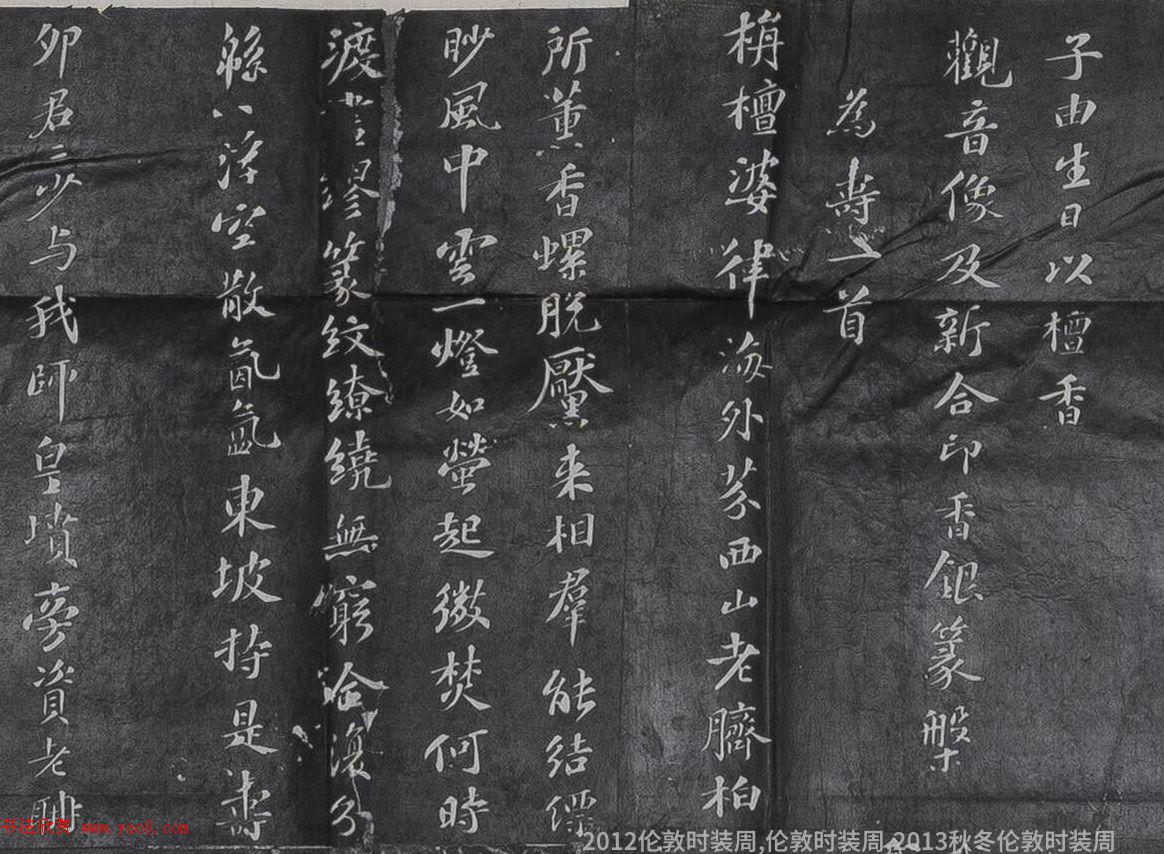 子由生日以檀香
觀音像及新合印香銀篆槃
為壽一首
栴檀婆律海外芬西山老臍柏
所薰香螺脫黶来相羣能結縹
眇風中雲一燈如螢起微焚何時
渡盡繆篆紋繚繞無窮合復分
緜〻浮空散氤氳東坡持是壽
卯君〻少与我師皇墳旁資老聃
书法欣赏 www.yac8.com
2012伦敦时装周,伦敦时装周,2013秋冬伦敦时装周